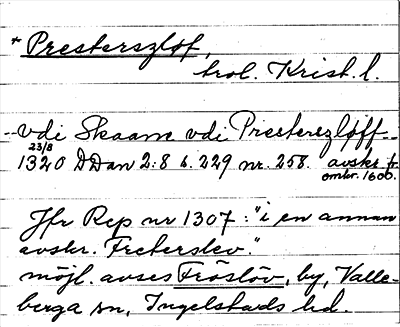 * Presterszløf,
trol. Krist. l.
-- vdi Skaane vdi Presterezløff --
23/8
1320 DDan 2:8 s. 229 nr. 258. avskr. fr.
omkr. 1600.
Jfr Rep nr 1307: "i en annan
avskr. Freterslev."
möjl. avses Fröslöv, by, Valle-
berga sn, Ingelstads hd.